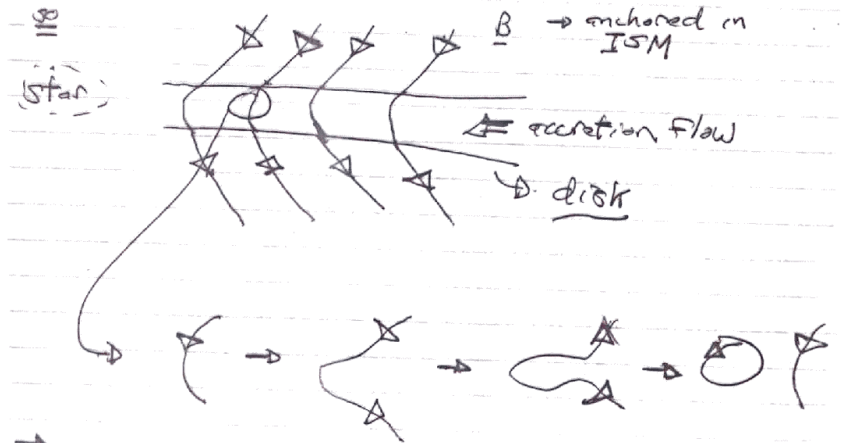 so
B → anchored in
ISM
star
⇐ accretion flow
→ disk